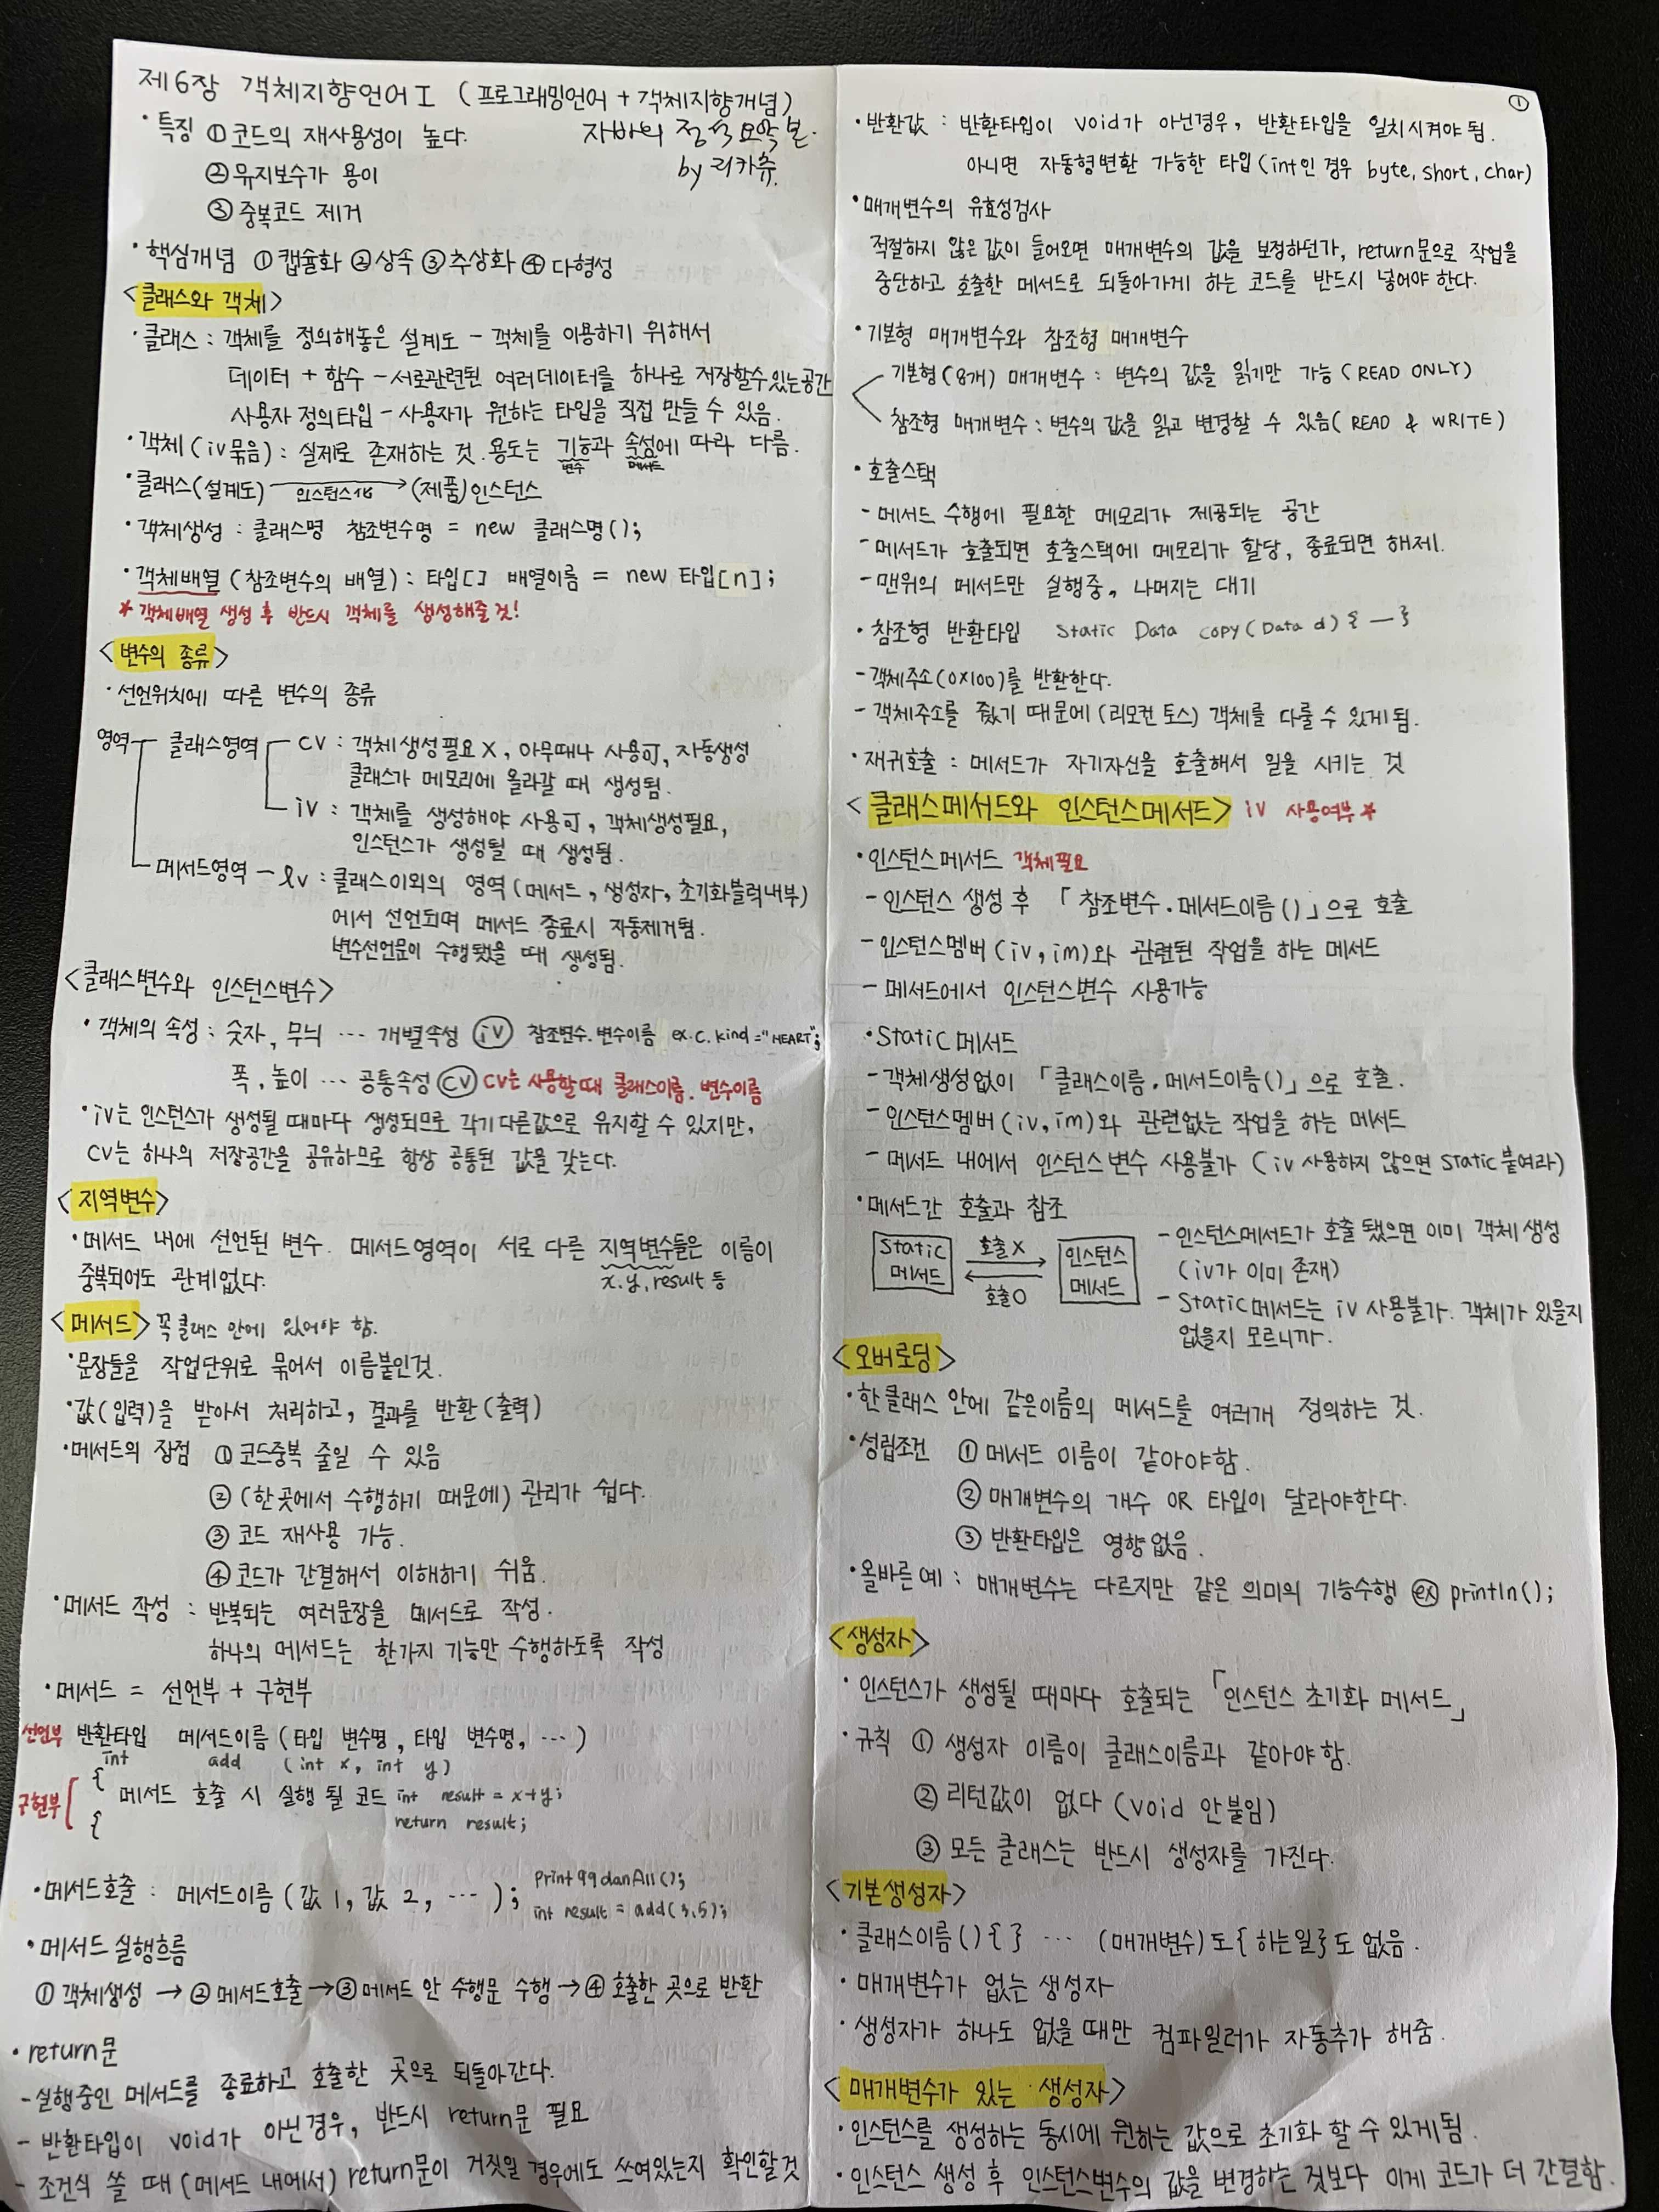 제6장 객체지향언어 I (프로그래밍언어 + 객체지향개념)
자바의 정석 요약본.
by 리카츄.
· 특징 ① 코드의 재사용성이 높다.
② 유지보수가 용이
③ 중복코드 제거
· 핵심개념 ① 캡슐화 ② 상속 ③ 추상화 ④ 다형성
<클래스와 객체>
· 클래스 : 객체를 정의해놓은 설계도 - 객체를 이용하기 위해서
데이터 + 함수 - 서로관련된 여러데이터를 하나로 저장할수있는공간
사용자 정의타입 - 사용자가 원하는 타입을 직접 만들 수 있음.
· 객체 (iv묶음) : 실제로 존재하는 것. 용도는 기능과 속성에 따라 다름.
변수 메서드
· 클래스(설계도) 인스턴스화 → (제품)인스턴스
· 객체생성 : 클래스명 참조변수명 = new 클래스명();
· 객체배열 (참조변수의 배열) : 타입[] 배열이름 = new 타입[n];
* 객체배열 생성 후 반드시 객체를 생성해줄것!
<변수의 종류>
· 선언위치에 따른 변수의 종류
영역 클래스영역 CV : 객체생성필요 X, 아무때나 사용可, 자동생성
클래스가 메모리에 올라갈 때 생성됨.
iv : 객체를 생성해야 사용可, 객체생성필요,
인스턴스가 생성될 때 생성됨.
메서드영역 - lv : 클래스 이외의 영역 (메서드, 생성자, 초기화블럭내부)
에서 선언되며 메서드 종료시 자동제거됨.
변수선언문이 수행됐을 때 생성됨.
<클래스변수와 인스턴스변수>
· 객체의 속성 : 숫자, 무늬 ... 개별속성 iv 참조변수.변수이름 ex.c.kind="HEART";
폭, 높이 ... 공통속성 CV CV는 사용할때 클래스이름.변수이름
· iv는 인스턴스가 생성될 때마다 생성되므로 각기 다른값으로 유지할 수 있지만,
CV는 하나의 저장공간을 공유하므로 항상 공통된 값을 갖는다.
<지역변수>
· 메서드 내에 선언된 변수. 메서드영역이 서로 다른 지역변수들은 이름이
중복되어도 관계없다. x.y,result 등
<메서드> 꼭 클래스 안에 있어야 함.
· 문장들을 작업단위로 묶어서 이름붙인것.
· 값(입력)을 받아서 처리하고, 결과를 반환 (출력)
· 메서드의 장점 ① 코드중복 줄일 수 있음
② (한곳에서 수행하기 때문에) 관리가 쉽다.
③ 코드 재사용 가능.
④ 코드가 간결해서 이해하기 쉬움.
· 메서드 작성 : 반복되는 여러문장을 메서드로 작성.
하나의 메서드는 한가지 기능만 수행하도록 작성
· 메서드 = 선언부 + 구현부
선언부 반환타입 메서드이름 (타입 변수명, 타입 변수명, ...)
int add (int x, int y)
{
구현부 메서드 호출 시 실행 될 코드 int result = x+y;
{ return result;
· 메서드호출 : 메서드이름 (값1, 값2, ...); print99danAll();
int result = add(3.5);
· 메서드 실행흐름
① 객체생성 → ② 메서드호출 → ③ 메서드 안 수행문 수행 → ④ 호출한 곳으로 반환
· return문
- 실행중인 메서드를 종료하고 호출한 곳으로 되돌아간다.
- 반환타입이 void가 아닌경우, 반드시 return문 필요
- 조건식 쓸 때 (메서드 내에서) return문이 거짓일 경우에도 쓰여있는지 확인할것
①
· 반환값 : 반환타입이 void가 아닌경우, 반환타입을 일치시켜야 됨.
아니면 자동형변환 가능한 타입 (int인 경우 byte, short, char)
· 매개변수의 유효성검사
적절하지 않은 값이 들어오면 매개변수의 값을 보정하던가, return문으로 작업을
중단하고 호출한 메서드로 되돌아가게 하는 코드를 반드시 넣어야 한다.
· 기본형 매개변수와 참조형 매개변수
기본형(8개) 매개변수 : 변수의 값을 읽기만 가능 (READ ONLY)
참조형 매개변수 : 변수의 값을 읽고 변경할 수 있음( READ & WRITE )
· 호출스택
- 메서드 수행에 필요한 메모리가 제공되는 공간
- 메서드가 호출되면 호출스택에 메모리가 할당, 종료되면 해제.
- 맨위의 메서드만 실행중, 나머지는 대기
· 참조형 반환타입 static Data copy(Data d) { — }
- 객체주소(0x100)를 반환한다.
- 객체주소를 줬기 때문에 (리모컨 토스) 객체를 다룰 수 있게 됨.
· 재귀호출 : 메서드가 자기자신을 호출해서 일을 시키는 것
<클래스메서드와 인스턴스메서드> iv 사용여부 *
· 인스턴스메서드 객체필요
- 인스턴스 생성 후 「참조변수.메서드이름()」으로 호출
- 인스턴스멤버 (iv, im)와 관련된 작업을 하는 메서드
- 메서드에서 인스턴스변수 사용가능
· Static 메서드
- 객체생성없이 「클래스이름.메서드이름()」으로 호출.
- 인스턴스멤버 (iv, im)와 관련없는 작업을 하는 메서드
- 메서드 내에서 인스턴스 변수 사용불가 (iv 사용하지 않으면 static 붙여라)
· 메서드간 호출과 참조
Static 메서드 호출X 호출O 인스턴스 메서드
- 인스턴스메서드가 호출 됐으면 이미 객체 생성
(iv가 이미 존재)
- Static메서드는 iv 사용불가. 객체가 있을지
없을지 모르니까.
<오버로딩>
· 한 클래스 안에 같은이름의 메서드를 여러개 정의하는 것.
· 성립조건 ① 메서드 이름이 같아야함.
② 매개변수의 개수 OR 타입이 달라야한다.
③ 반환타입은 영향없음.
· 올바른 예 : 매개변수는 다르지만 같은 의미의 기능수행 ex println();
<생성자>
· 인스턴스가 생성될 때마다 호출되는 「인스턴스 초기화 메서드」
· 규칙 ① 생성자 이름이 클래스이름과 같아야 함.
② 리턴값이 없다 (void 안붙임)
③ 모든 클래스는 반드시 생성자를 가진다.
<기본생성자>
· 클래스이름(){ } ... (매개변수)도 {하는일}도 없음.
· 매개변수가 없는 생성자
· 생성자가 하나도 없을때만 컴파일러가 자동추가 해줌.
<매개변수가 있는 생성자>
· 인스턴스를 생성하는 동시에 원하는 값으로 초기화 할 수 있게됨.
· 인스턴스 생성 후 인스턴스변수의 값을 변경하는 것보다 이게 코드가 더 간결함.